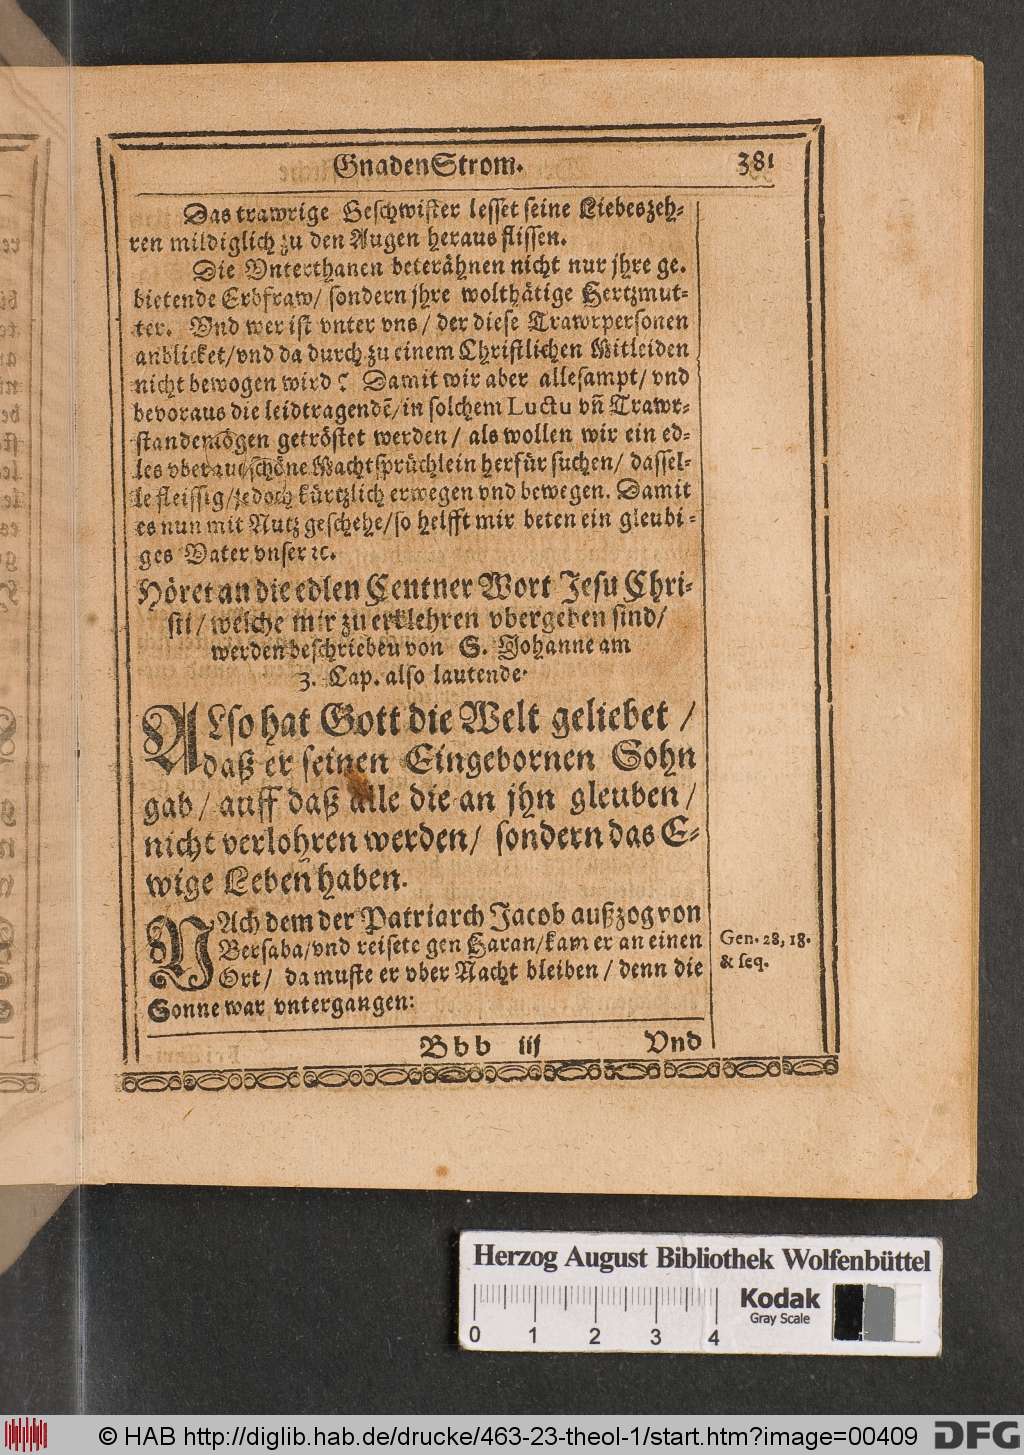 GnadenStrom. 381
Das trawrige Geschwister lesset seine Liebeszeh-
ren mildiglich zu den Augen heraus flissen.
Die Vnterthanen beterähnen nicht nur jhre ge.
bietende Erbfraw/ sondern jhre wolthätige Hertzmut-
ter. Vnd wer ist vnter vns/ der diese Trawrpersonen
anblicket/ vnd da durch zu einem Christlichen Mitleiden
nicht bewogen wird? Damit wir aber allesampt/ vnd
bevoraus die leidtragendē/ in solchem Luctu vñ Trawr-
stande mögen getröstet werden/ als wollen wir ein ed-
les vberaus schöne Machtsprüchlein herfür suchen/ dassel-
le fleissig/ jedoch kürtzlich erwegen vnd bewegen. Damit
es nun mit Nutz geschehe/ so helfft mir beten ein gleubi-
ges Vater vnser ꝛc.
Höret an die edlen Centner Wort Jesu Chri-
sti/ welche mir zu erklehren vbergeben sind/
werden beschrieben von S. Johanne am
3. Cap. also lautende.
ALso hat Gott die Welt geliebet/
daß er seinen Eingebornen Sohn
gab/ auff daß alle die an jhn gleuben/
nicht verlohren werden/ sondern das E-
wige Leben haben.
NAch dem der Patriarch Jacob außzog von
Bersaba/ vnd reisete gen Haran/ kam er an einen
Ort/ da muste er vber Nacht bleiben/ denn die
Sonne war vntergangen:
Gen. 28, 18.
& seq.
Bbb iij Vnd
Herzog August Bibliothek Wolfenbüttel
0 1 2 3 4
Kodak
Gray Scale
© HAB http://diglib.hab.de/drucke/463-23-theol-1/start.htm?image=00409
DFG